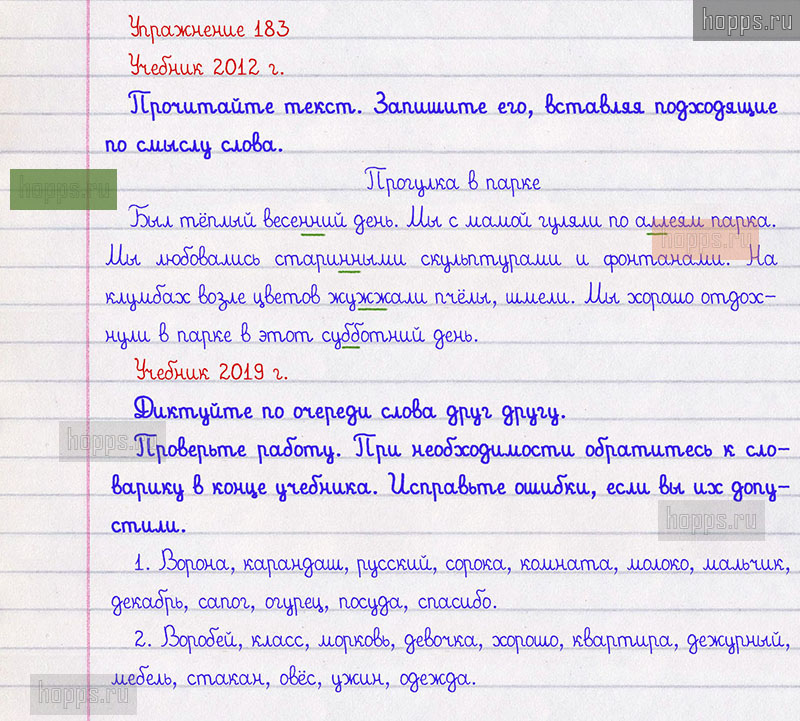 hopps.ru
Упражнение 183
Учебник 2012 г.
Прочитайте текст. Запишите его, вставляя подходящие
по смыслу слова.
Прогулка в парке
hopps.ru
Был тёплый весенний день. Мы с мамой гуляли по аллеям парка.
hopps.ru
Мы любовались старинными скульптурами и фонтанами. На
клумбах возле цветов жужжали пчёлы, шмели. Мы хорошо отдох-
нули в парке в этот субботний день.
Учебник 2019 г.
Диктуйте по очереди слова друг другу.
hopps.ru
Проверьте работу. При необходимости обратитесь к сло-
варику в конце учебника. Исправьте ошибки, если вы их допу-
стили.
hopps.ru
1. Ворона, карандаш, русский, сорока, комната, молоко, мальчик,
декабрь, сапог, огурец, посуда, спасибо.
2. Воробей, класс, морковь, девочка, хорошо, квартира, дежурный,
мебель, стакан, овёс, ужин, одежда.
hopps.ru